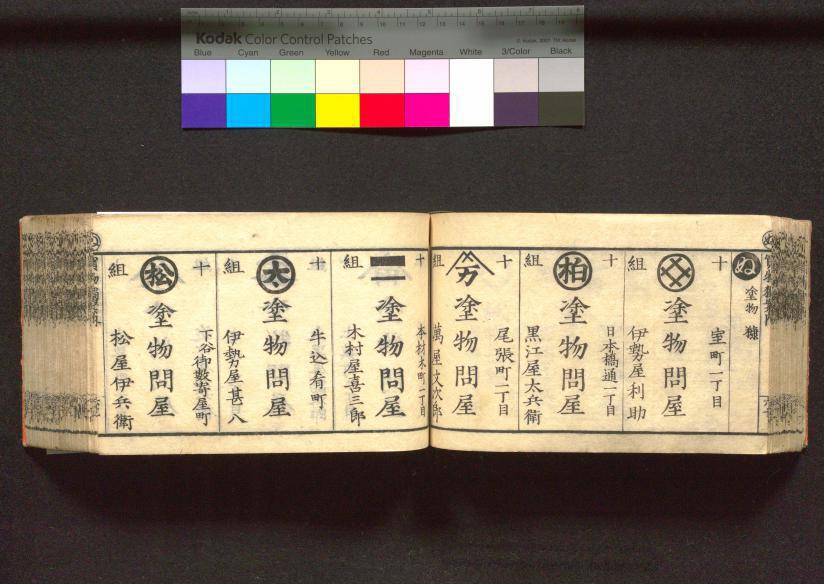 Kodak Color Control Patches
© Kodak, 2007 TM: Kodak
Blue Cyan Green Yellow Red Magenta White 3/Color Black
ぬ
塗物
十
室町一丁目
塗物問屋
組
伊勢屋利助
十
日本橋通一丁目
柏
塗物問屋
組
黒江屋太兵衛
十
尾張町一丁目
万
塗物問屋
組
萬屋文次郎
十
本材木町一丁目
二
塗物問屋
組
木村屋喜三郎
十
牛込肴町
太
塗物問屋
組
伊勢屋甚八
十
下谷御数寄屋町
松
塗物問屋
組
松屋伊兵衛